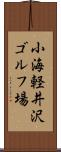 小海軽井沢
ゴルフ場